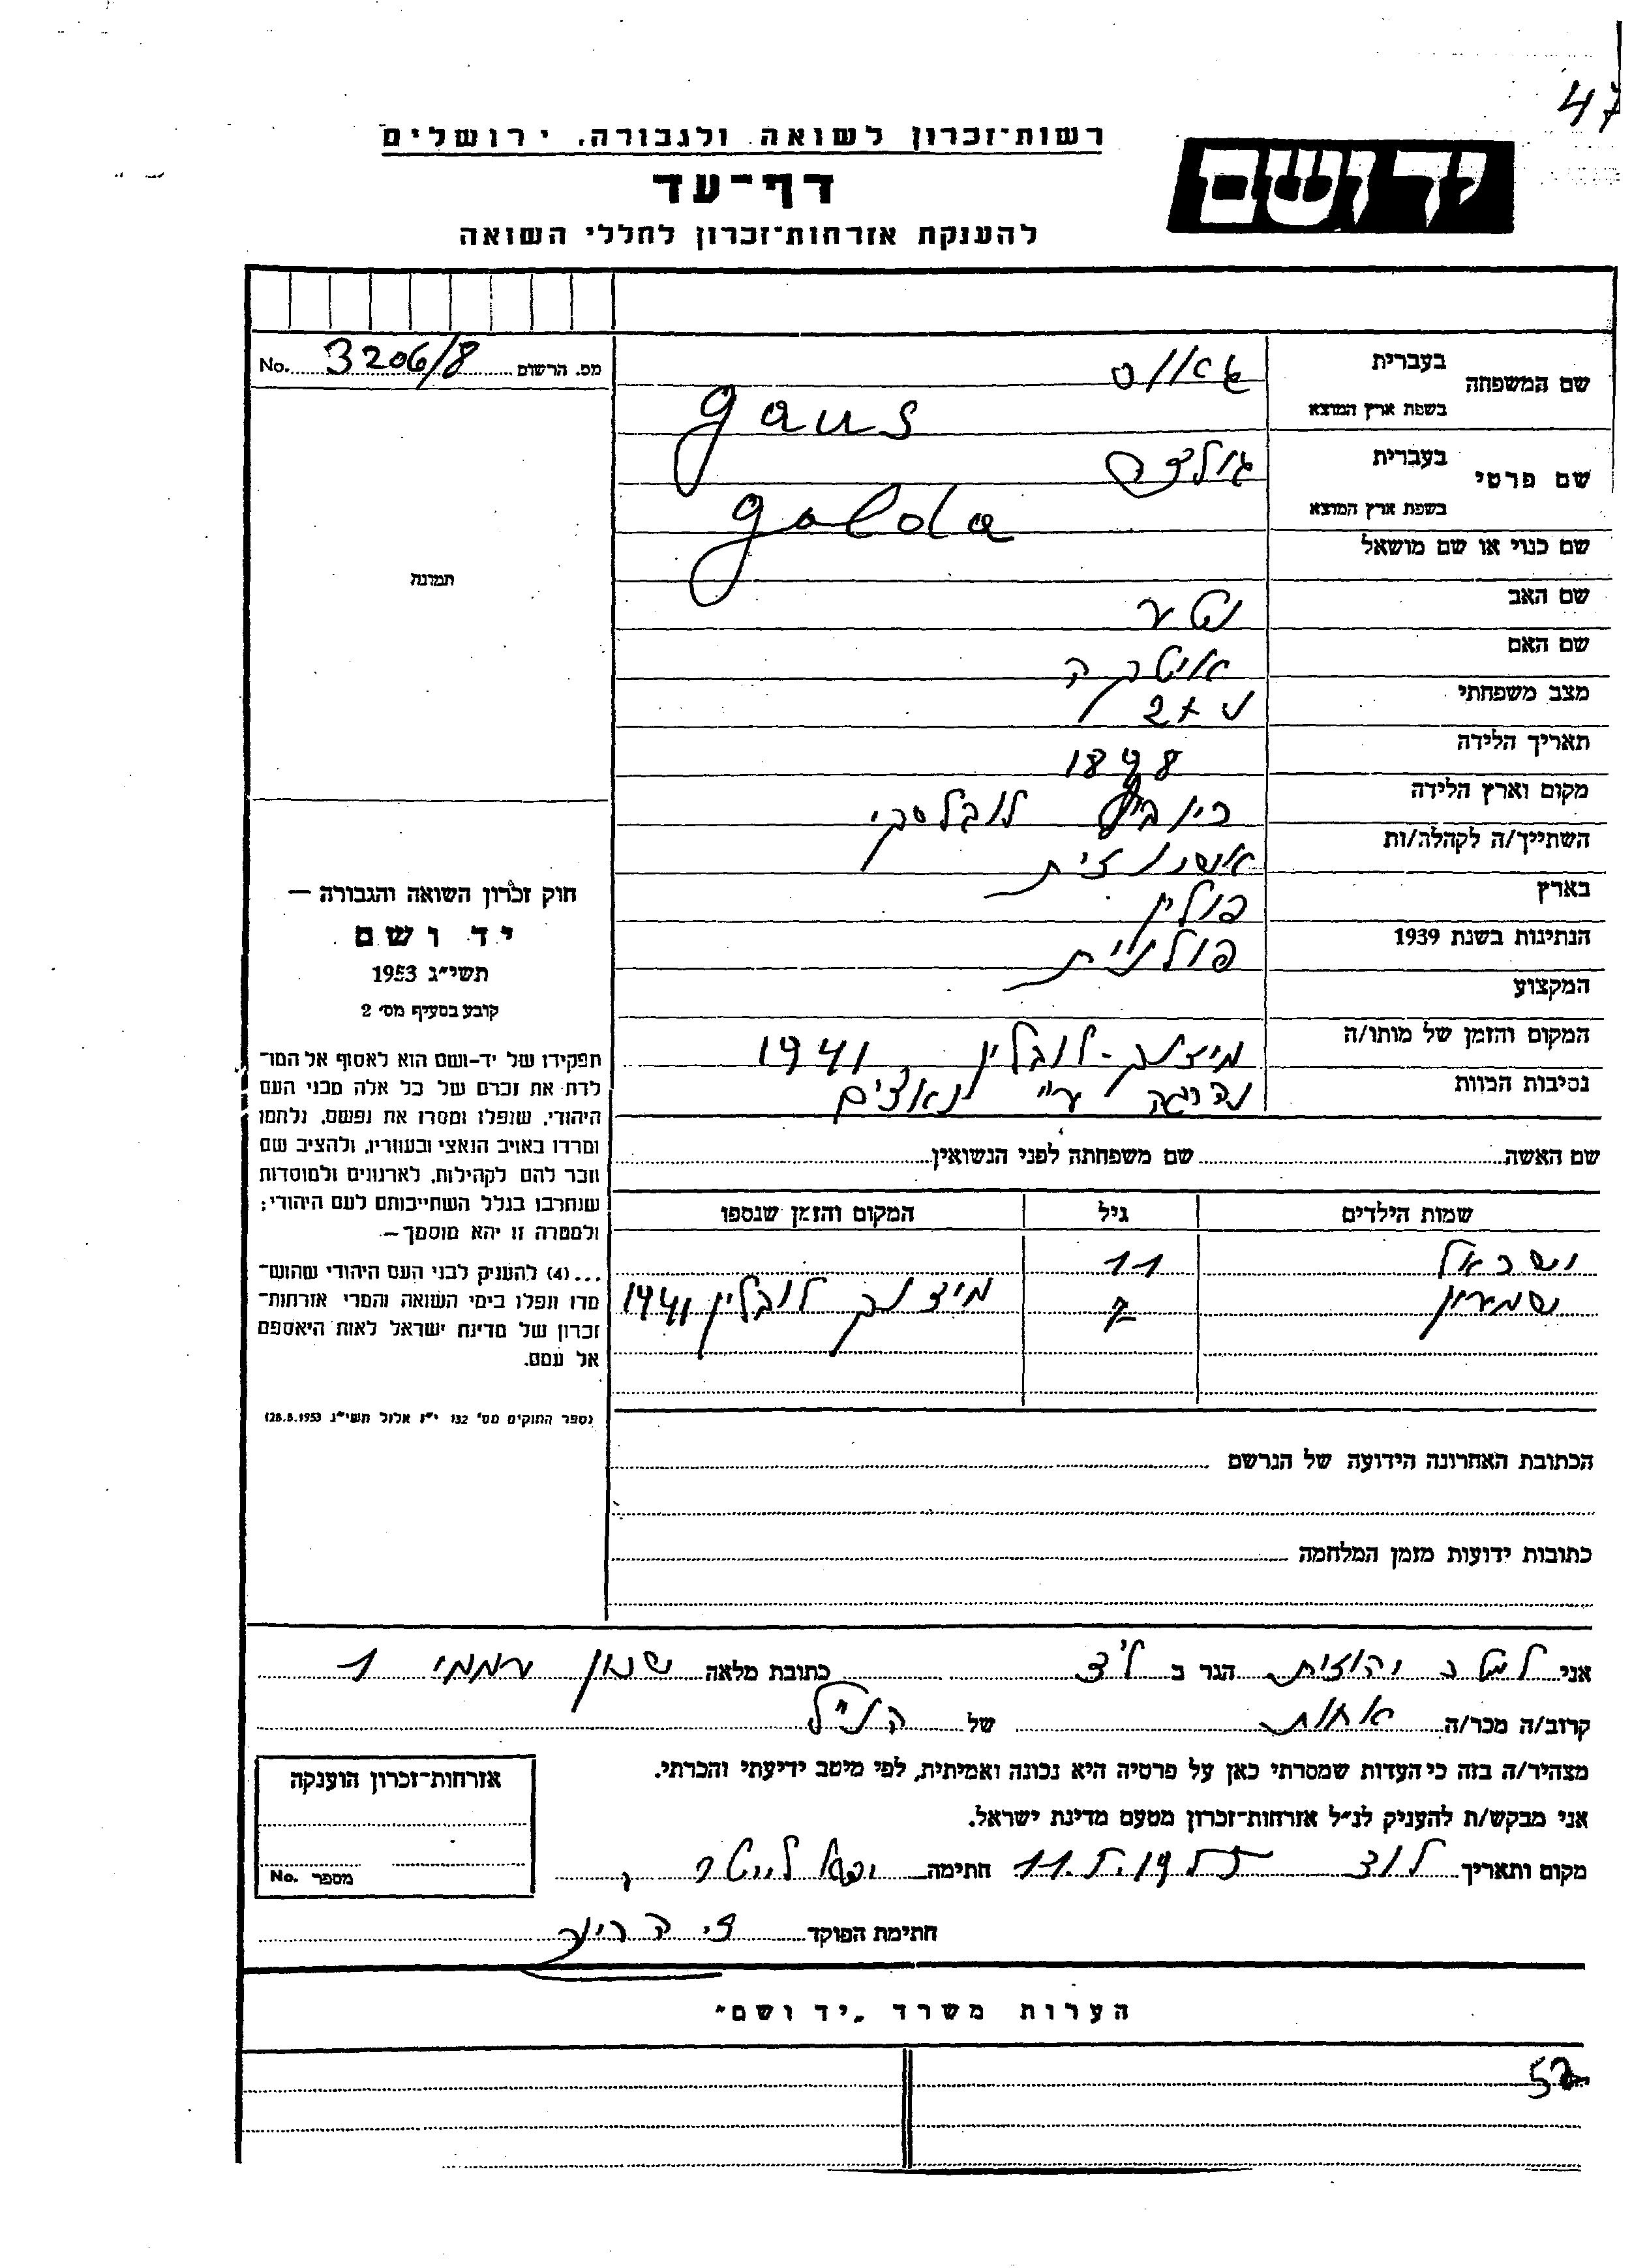 47
רשות־זכרון לשואה ולגבורה, ירושלים
יד ושם
דף־עד
להענקת אזרחות־זכרון לחללי השואה
מס. הרשום 3206/8 No.
שם המשפחה
בעברית גאוס
בשפת ארץ המוצא gaus
שם פרטי
בעברית גולדה
בשפת ארץ המוצא golda
שם כנוי או שם מושאל
שם האב נטע
שם האם איטקה
מצב משפחתי נ+2
תאריך הלידה 1898
מקום וארץ הלידה לובלסקי
השתייך/ה לקהלה/ות אשכנזית
בארץ פולין
הנתינות בשנת 1939 פולנית
המקצוע
המקום והזמן של מותו/ה מידנק-לובלין 1941
נסיבות המות נהרגה ע"י נאצים
שם האשה שם משפחתה לפני הנשואין
שמות הילדים גיל המקום והזמן שנספו
ישראל 11
שמעון 7 מידנק לובלין 1941
הכתובת האחרונה הידועה של הנרשם
כתובות ידועות מזמן המלחמה
תמונה
חוק זכרון השואה והגבורה —
יד ושם
תשי״ג 1953
קובע בסעיף מס׳ 2
תפקידו של יד-ושם הוא לאסוף אל המו־
לדת את זכרם של כל אלה מבני העם
היהודי, שנפלו ומסרו את נפשם, נלחמו
ומרדו באויב הנאצי ובעוזריו, ולהציב שם
וזכר להם לקהילות, לארגונים ולמוסדות
שנחרבו בגלל השתייכותם לעם היהודי;
ולמטרה זו יהא מוסמך —
...(4) להעניק לבני העם היהודי שהוש־
מדו ונפלו בימי השואה והמרי אזרחות־
זכרון של מדינת ישראל לאות היאספם
אל עמם.
(ספר החוקים מס׳ 132 י״ז אלול תשי״ג 28.8.1953)
אני יהודית הגר ב כתובת מלאה שכון עממי 1
קרוב/ה מכר/ה אחות של הנ"ל
מצהיר/ה בזה כי העדות שמסרתי כאן על פרטיה היא נכונה ואמיתית, לפי מיטב ידיעתי והכרתי.
אני מבקש/ת להעניק לנ״ל אזרחות־זכרון מטעם מדינת ישראל.
מקום ותאריך לוד חתימה
חתימת הפוקד
אזרחות־זכרון הוענקה
מספר No.
הערות משרד „יד ושם״